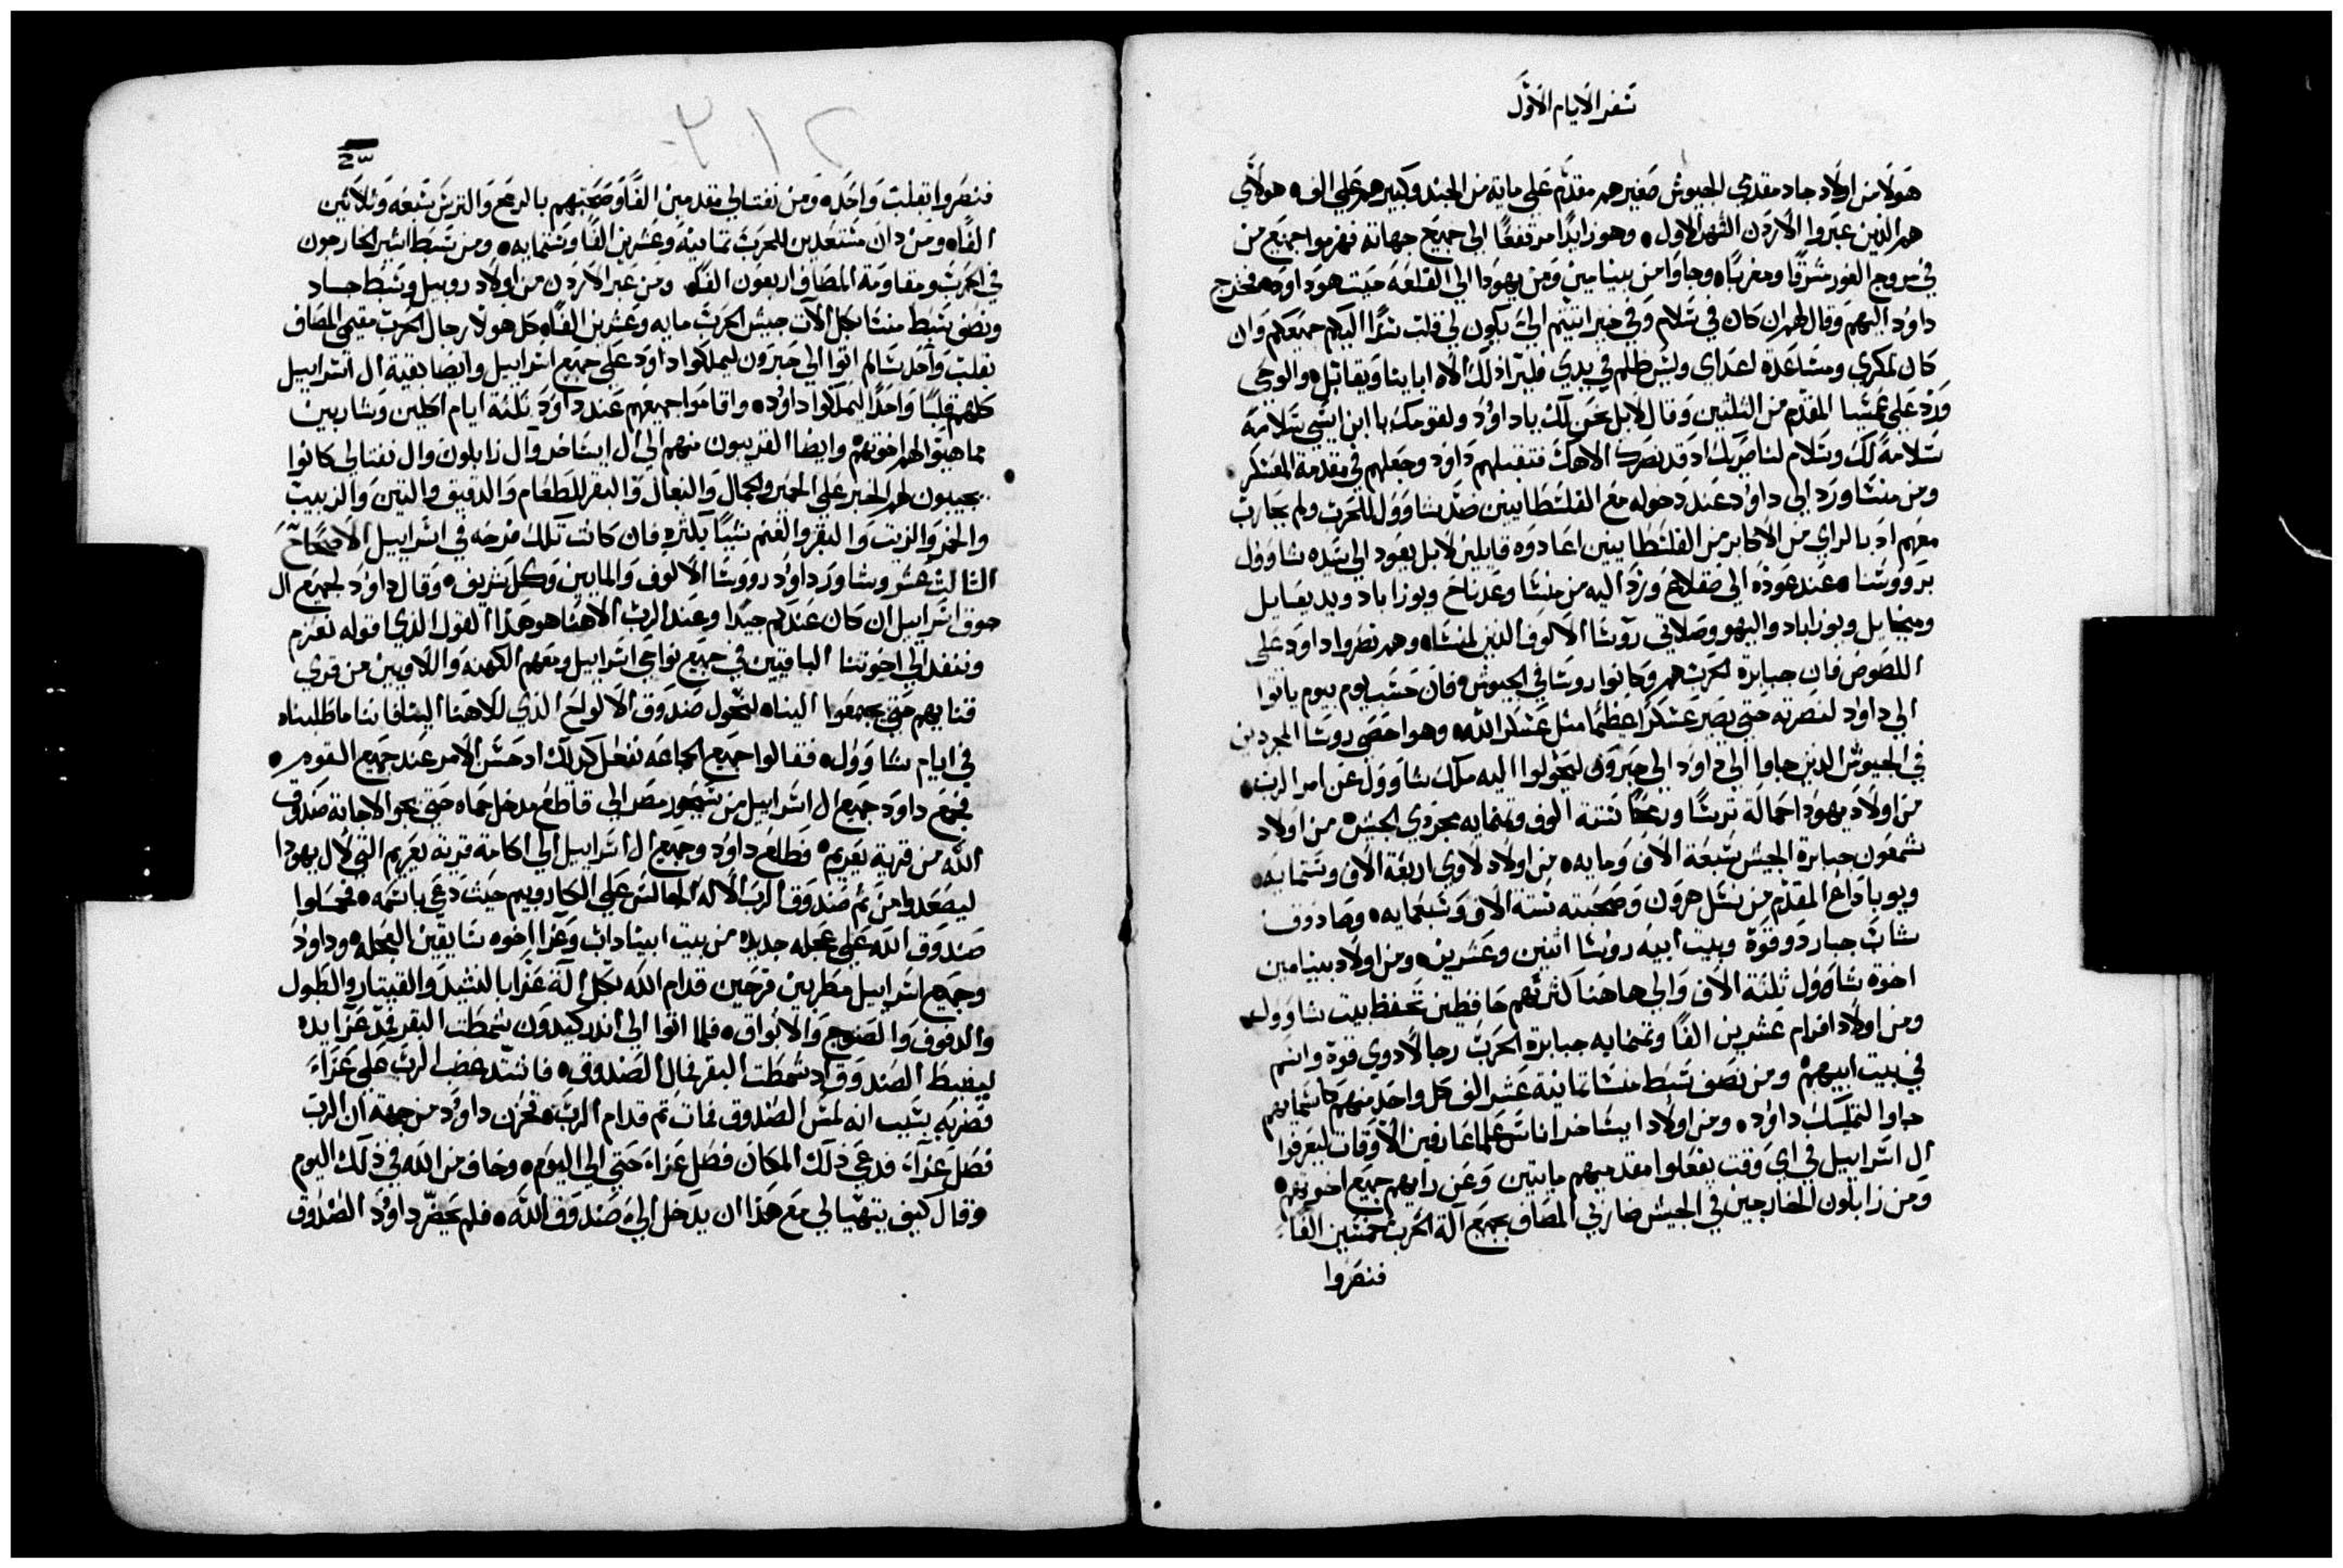 سفر الايام الاول
هولا من اولاد جاد مقدمي الجيوش صغيرهم مقدم علي مايه من الجند وكبيرهم علي الف ٥ هولاي
هم الذين عبروا الاردن الشهر الاول ٥ وهو زايدًا مرتفعًا الي جميع جهاته فهزموا جميع من
في مروج الغور مشرقًا ومغربًا ٥ وجاوا من بينامين ومن يهودا الي القلعه حيت هو داود ٥ فخرج
داود اليهم وقال لهم ان كان في سلام وفي خير اتيتم الي يكون لي قلب اليكم جميعكم وان
كان لمكري ومساعدة اعداي وليس ظلم في يدي فليرا ذلك الاه اباينا ويقاتل ٥ والوحي
ورد علي عمسيا المقدم من الثلثين وقال لابل نحن لك ياداود ولقومك يا ابن ايسي سلامه
سلامة لك وسلام لناصريك اد قد نصرك الاهك فتقبلهم داود وجعلهم في مقدمة العسكر ٥
ومن منسا ورد الي داود عند دخوله مع الفلسطانيين ضد شاوول للحرب ولم يحارب
معهم اد بالراي من الاكابر من الفلسطانيين اعادوه قايلين لابل يعود الي سيده شاوول
برووسنا ٥ عند عوده الي صقلاع ورد اليه من منسا وعدناح ويوزاباد ويديعايل
وميخايل ويوزاباد واليهو وصلاتي روسا الالوف الدين لمنسا ٥ وهم نصروا داود علي
اللصوص فان جبابرة الحرب هم وكانوا روسا في الجيوش ٥ فان حسب يوم بيوم ياتوا
الي داود لنصرته حتي يصير عسكرًا عظيمًا مثل عسكر الله ٥ وهو احصي روسا المجردين
في الجيوش الدين جاوا الي داود الي حبرون ليحولوا اليه ملك شاوول عن امر الرب ٥
من اولاد يهودا حمالة ترسًا ورمحًا ستة الوف وثمنمايه مجردي الجيش ٥ من اولاد
شمعون جبابرة الجيش سبعة الاف ومايه ٥ من اولاد لاوي اربعة الاف وستمايه ٥
ويوباداع المقدم من نسل هرون وصحبته ستة الاف وسبعمايه ٥ وصادوق
شاب جبار دو قوة وبيت ابيه روسا اثنين وعشرين ٥ ومن اولاد بينامين
اخوة شاوول ثلثة الاف والي هاهنا كثرتهم حافظين تحفظ بيت شاوول ٥
ومن اولاد افرام عشرين الفًا وثمنمايه جبابرة الحرب رجالًا دوي قوة واسم
في بيت ابيهم ٥ ومن نصف سبط منسا ثمانية عشر الف كل واحد منهم كاسمايهم
جاوا لتمليك داود ٥ ومن اولاد ايساخر اناس علما عارفين الاوقات ليعرفوا
ال اسرابيل في اي وقت يفعلوا مقدميهم مايتين وعن رايهم جميع اخوتهم ٥
ومن زابلون الخارجين في الجيش ضاربي المصاف بجميع آلة الحرب خمسين الفًا
فنصروا
فنصروا بقلب واحد ٥ ومن نفتالي مقدمين الفًا وصحبتهم بالرمح والترس سبعه وثلاثين
الفًا ٥ ومن دان مستعدين للحرب ثمانية وعشرين الفًا وستمايه ٥ ومن سبط اشير الخارجون
في الحرب ومقاومة المصاف اربعون الفًا ٥ ومن عبر الاردن من اولاد روبيل وسبط جاد
ونصف سبط منسا بكل الآت جيش الحرب مايه وعشرين الفًا ٥ كل هولا رجال الحرب مقيمي المصاف
بقلب واحد سالم اتوا الي حبرون ليملكوا داود علي جميع اسرابيل وايضا بقية ال اسرابيل
كلهم قلبًا واحدًا ليملكوا داود ٥ واقاموا جميعهم عند داود ثلثة ايام اكلين وشاربين
مما هيوا لهم اخوتهم ٥ وايضا القريبون منهم الي ال ايساخر وآل زابلون وال نفتالي كانوا
يجيبون لهم الخبز علي الحمير والجمال والبغال والبقر للطعام والدقيق والتين والزبيب
والخمر والزيت والبقر والغنم شيًا بكثره فان كانت تلك فرحه في اسرابيل الاصحاح
الثالث عشر وشاور داود رووسا الالوف والمايين وكل شريف ٥ وقال داود لجميع ال
جوق اسرابيل ان كان عندكم جيدًا وعند الرب الاهنا هو هدا القول الذي اقوله نعزم
وننفد الي اخوتنا الباقيين في جميع نواحي اسرابيل ومعهم الكهنه واللاويين من قري
قناهم حتي يجمعوا الينا ٥ لتحول صندوق الالواح الذي للاهنا الينا فاننا ما طلبناه
في ايام شاوول ٥ فقالوا جميع الجماعه نفعل كدلك اد حسن الامر عند جميع القوم ٥
فجمع داود جميع ال اسرابيل من سيحور مصر الي قاطع مدخل حماه حتي يحولاجابة صندوق
الله من قرية يعريم ٥ فطلع داود وجميع ال اسرابيل الي اكامة قرية يعريم التي لال يهودا
ليصعدوا من ثم صندوق الرب الاله الجالس علي الكاروبيم حيث دعي باسمه ٥ فحملوا
صندوق الله علي عجله جديده من بيت ابيناداب وعزا اخوه سايقين العجله ٥ وداود
وجميع اسرابيل مطربين فرحين قدام الله بكل آلة عزابا لنشيد والقيتار والطبول
والدفوف والصنوج والابواق ٥ فلما اتوا الي اندر كيدون شمطت البقر فمد عزا يده
ليضبط الصندوق اد شمطت البقر فمال الصندوق ٥ فاشتد غضب الرب علي عزاء
فضربه بسبب انه لمس الصندوق فمات ثم قدام الرب ٥ فحزن داود من جهة ان الرب
فصل عزاء فدعي ذلك المكان فصل عزاء حتي الي اليوم ٥ وخاف من الله في ذلك اليوم
وقال كيف يتهيا لي مع هذا ان يدخل الي صندوق الله ٥ فلم يحضر داود الصندوق